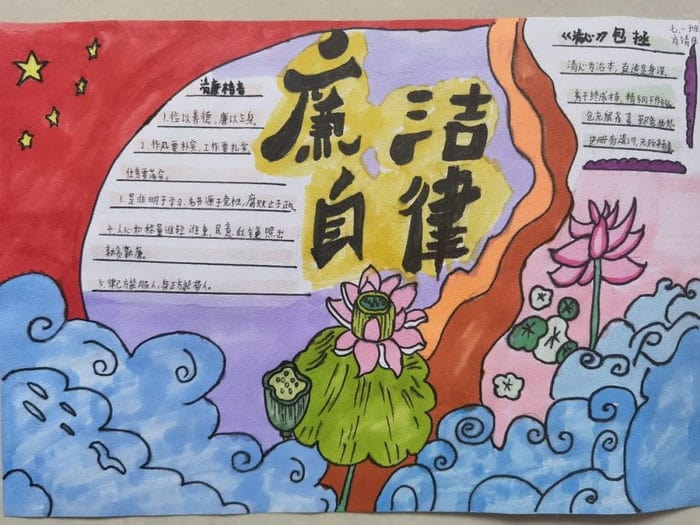 廉洁
自律
清廉格言
1.俭以养德，廉以立身。
2.作风重朴实，工作重扎实，
任务重落实。
3.是非明于学习，名节源于党性，腐败止于正气。
4.人心如秤量谁轻谁重，民意似镜照出
勤廉。
5.律己方能服人，身正方能带人。
《清心》包拯
清心为治本，直道是身谋。
秀干终成栋，精钢不作钩。
仓充鼠雀喜，草尽
史册有遗训，无贻来者羞。
七.一班